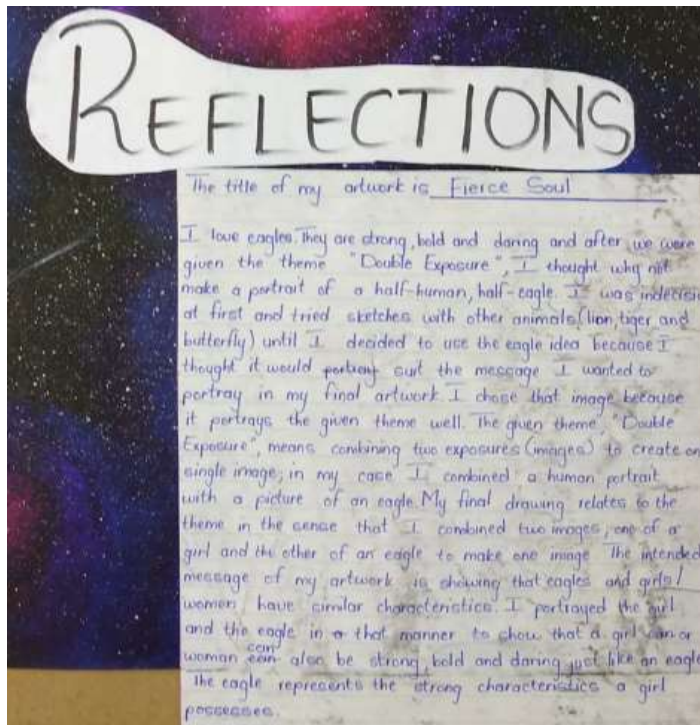 REFLECTIONS
The title of my artwork is Fierce Soul
I love eagles. They are strong, bold and daring and after we were
given the theme "Double Exposure", I thought why not
make a portrait of a half-human, half-eagle. I was indecisi
at first and tried sketches with other animals (lion, tiger and
butterfly) until I decided to use the eagle idea because I
thought it would portray suit the message I wanted to
portray in my final artwork. I chose that image because
it portrays the given theme well. The given theme, "Double
Exposure", means combining two exposures (images) to create on
single image; in my case I combined a human portrait
with a picture of an eagle. My final drawing relates to the
theme in the sense that I combined two images, one of a
girl and the other of an eagle to make one image. The intended
message of my artwork is showing that eagles and girls/
women have similar characteristics. I portrayed the girl
and the eagle in a that manner to show that a girl or a
woman can also be strong, bold and daring just like an eagle
The eagle represents the strong characteristics a girl
possesses.